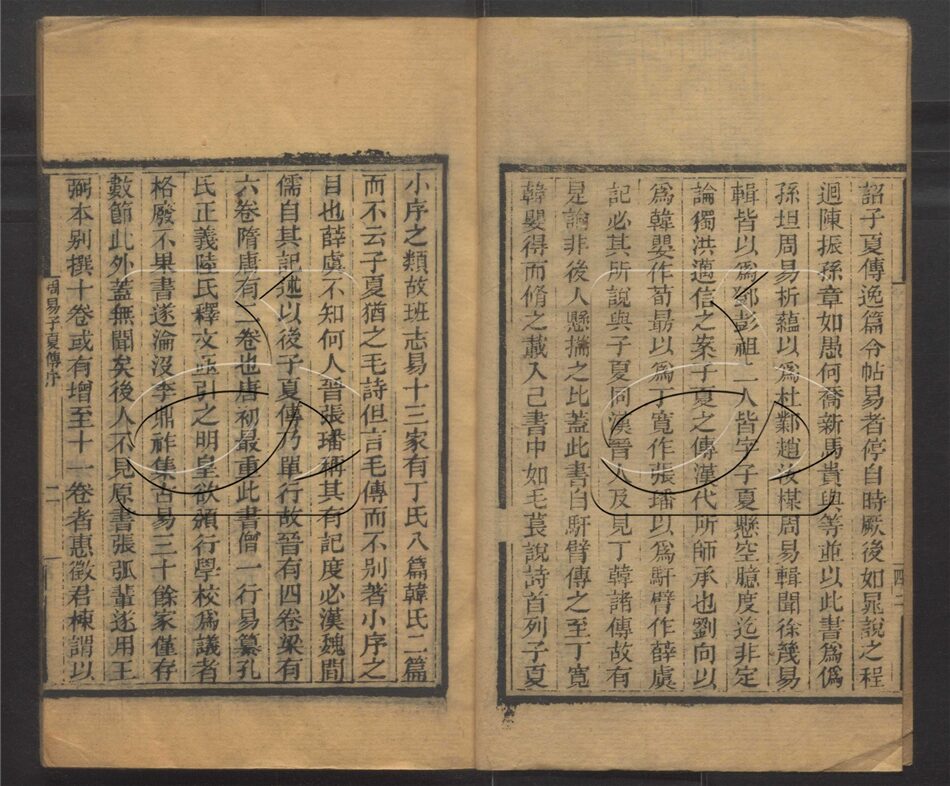 詔子夏傳逸篇令帖易者停自時厥後如晁說之程
迥陳振孫章如愚何喬新馬貴與等並以此書爲僞
孫坦周易析蘊以爲杜鄴趙汝楳周易輯聞徐幾易
輯皆以爲鄧彭祖二人皆字子夏懸空臆度迄非定
論獨洪邁信之案子夏之傳漢代所師承也劉向以
爲韓嬰作荀勗以爲丁寬作張璠以爲馯臂作薛虞
記必其所說與子夏同漢晉人及見丁韓諸傳故有
是論非後人懸揣之比蓋此書自馯臂傳之至丁寬
韓嬰得而脩之載入己書中如毛萇說詩首列子夏
小序之類故班志易十三家有丁氏八篇韓氏二篇
而不云子夏猶之毛詩但言毛傳而不別著小序之
目也薛虞不知何人晉張璠稱其有記度必漢魏間
儒自其記述以後子夏傳乃單行故晉有四卷梁有
六卷隋唐有二卷也唐初最重此書僧一行易纂孔
氏正義陸氏釋文亟引之明皇欲頒行學校爲議者
格廢不果書遂淪沒李鼎祚集古易三十餘家僅存
數節此外蓋無聞矣後人不見原書張弧輩遂用王
弼本別撰十卷或有增至十一卷者惠徵君棟謂以
周易子夏傳序
二